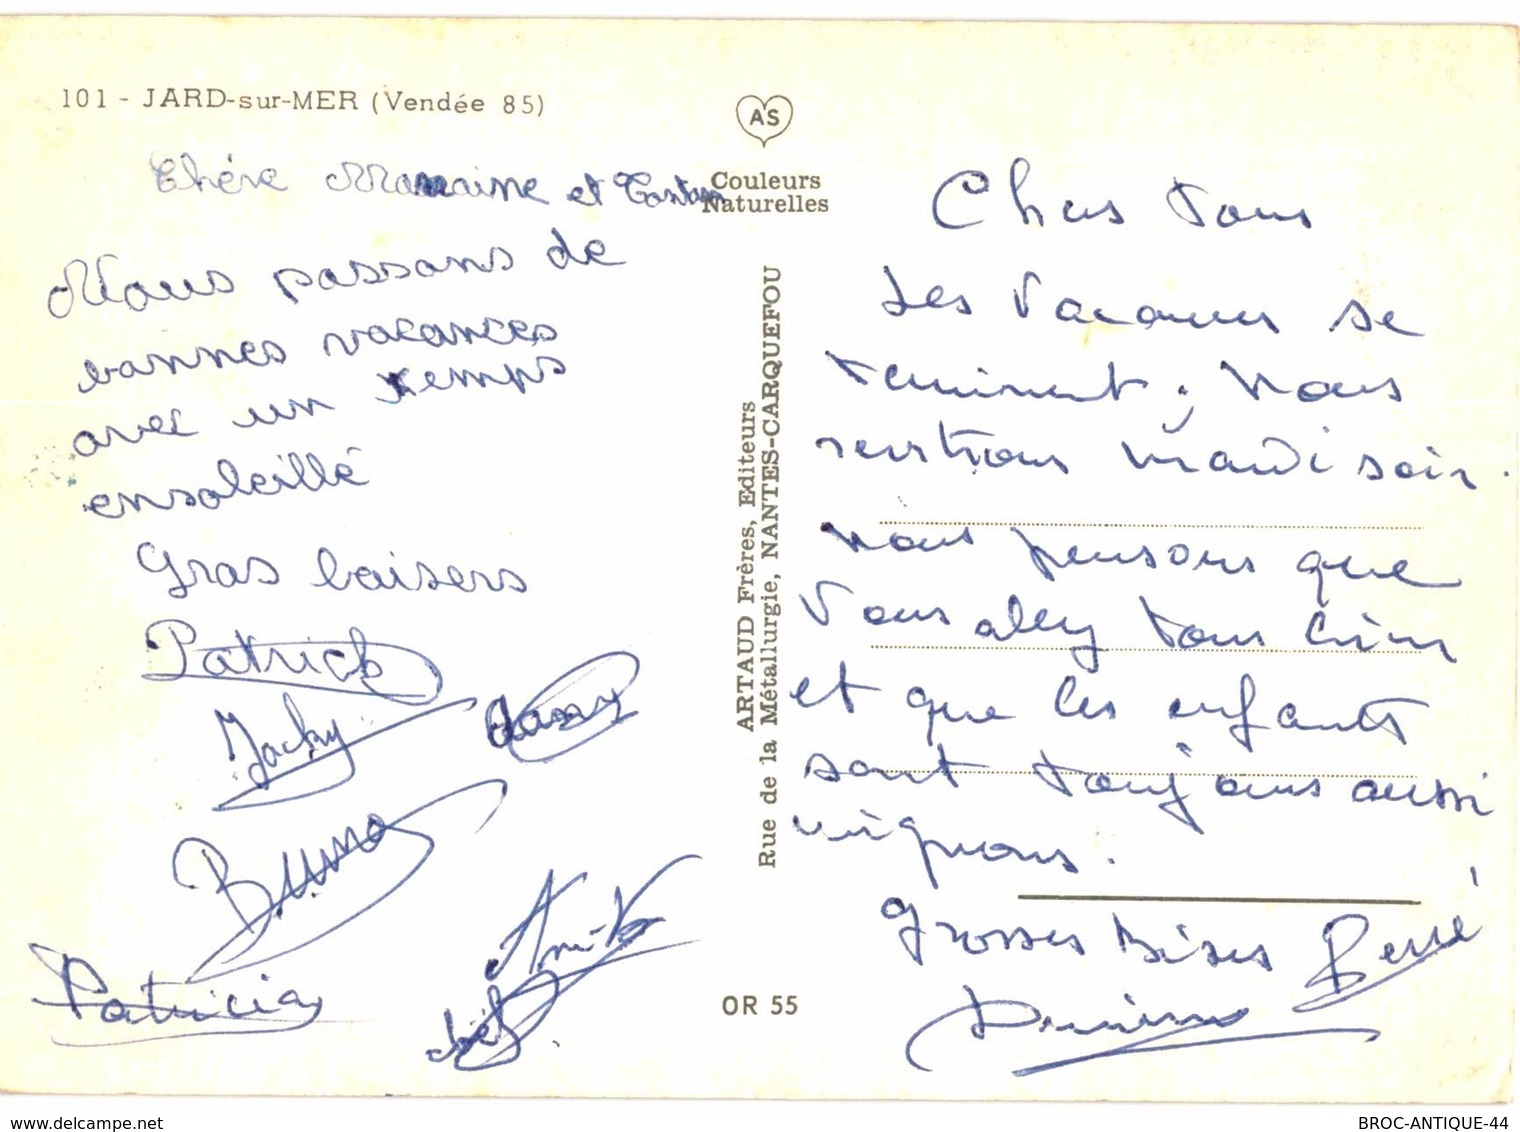 101 - JARD-sur-MER (Vendée 85)
AS
Couleurs
Naturelles
Chère Marraine et Tonton
Nous passons de
bonnes vacances
avec un temps
ensoleillé
Gros baisers
Patrick
Jacky dany
Bruno
Patricia
ARTAUD Frères, Editeurs
Rue de la Métallurgie, NANTES-CARQUEFOU
OR 55
Chers tous
Les Vacances se
terminent; nous
rentrons mardi soir.
nous pensons que
Vous allez tous bien
et que les enfants
sont toujours aussi
mignons.
grosses Bises
delcampe.net
BROC-ANTIQUE-44